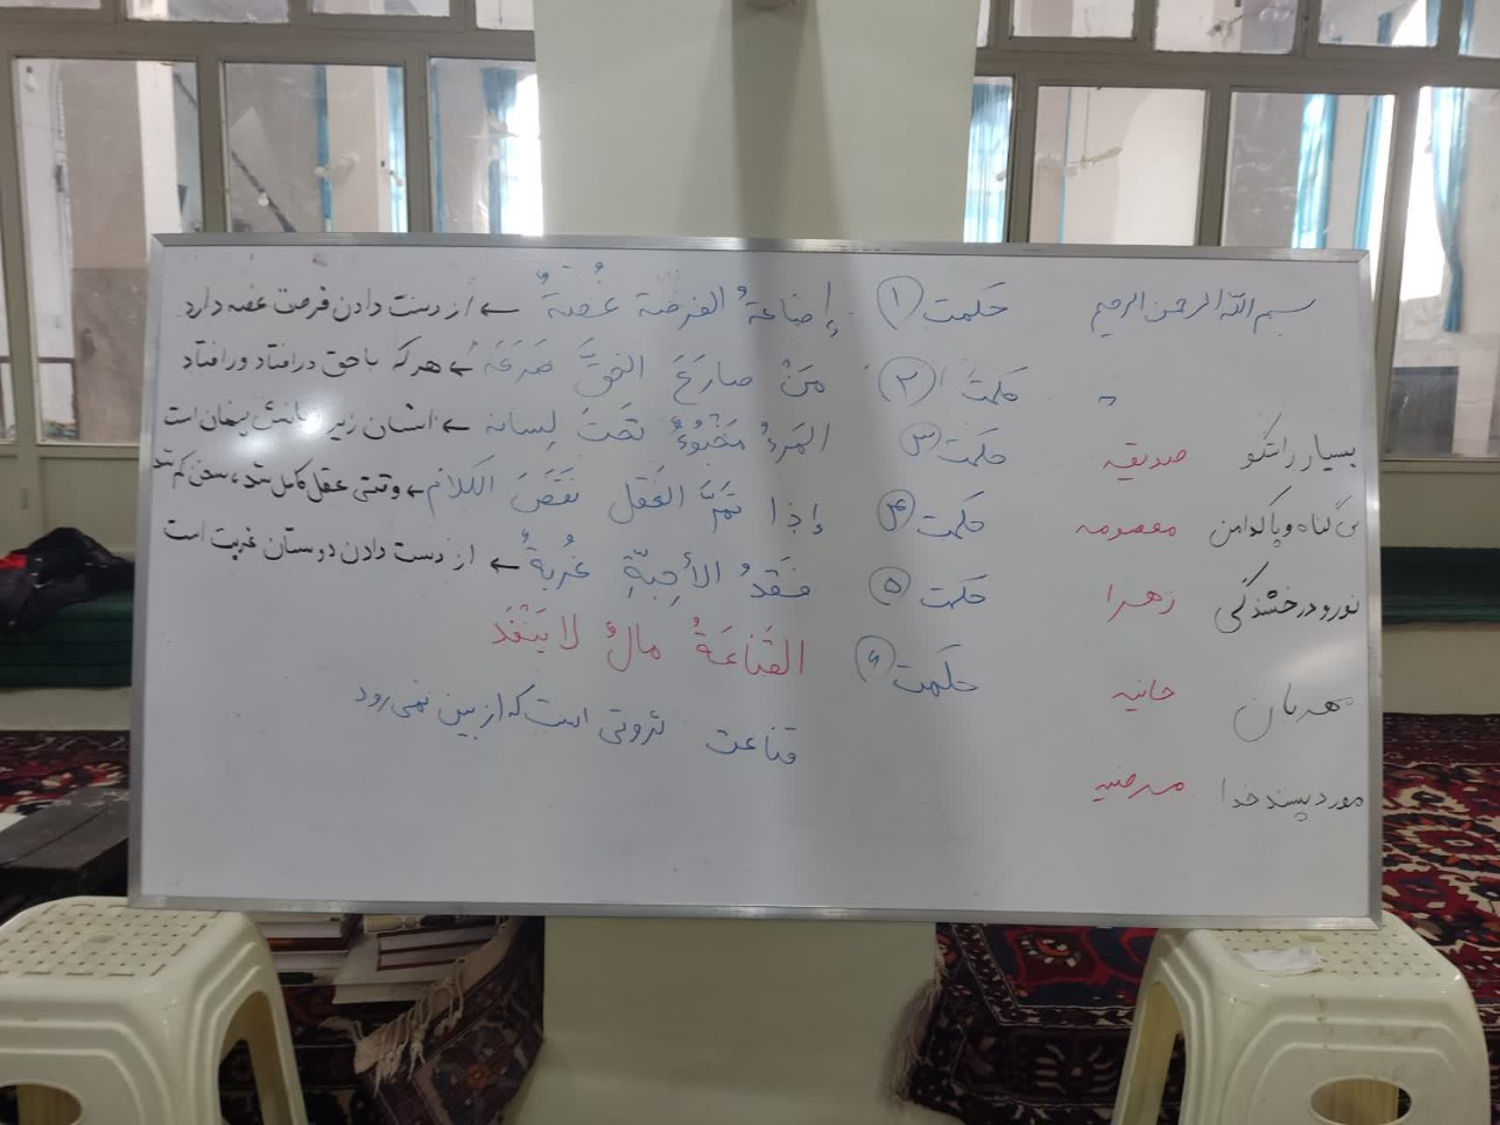 بسم الله الرحمن الرحیم
حکمت ۱ إضاعةُ الفرصة غُصةٌ ← از دست دادن فرصت غصه دارد
حکمت ۲ مَنْ صارَعَ الحَقَّ صَرَعَهُ ← هر که با حق درافتاد ورافتاد
حکمت ۳ المَرءُ مَخْبُوءٌ تَحتَ لِسانه ← انسان زیر زبانش پنهان است
حکمت ۴ إذا تَمَّ العَقل نَقَصَ الکلام ← وقتی عقل کامل شد، سخن کم شد
حکمت ۵ فَقدُ الأحِبّةِ غُربةٌ ← از دست دادن دوستان غربت است
حکمت ۶ القَناعَةُ مالٌ لا یَنْفَد
قناعت ثروتی است که از بین نمی‌رود
بسیار راستگو صدیقه
بی گناه و پاکدامن معصومه
نور و درخشندگی زهرا
مهربان حانیه
مورد پسند خدا مرضیه